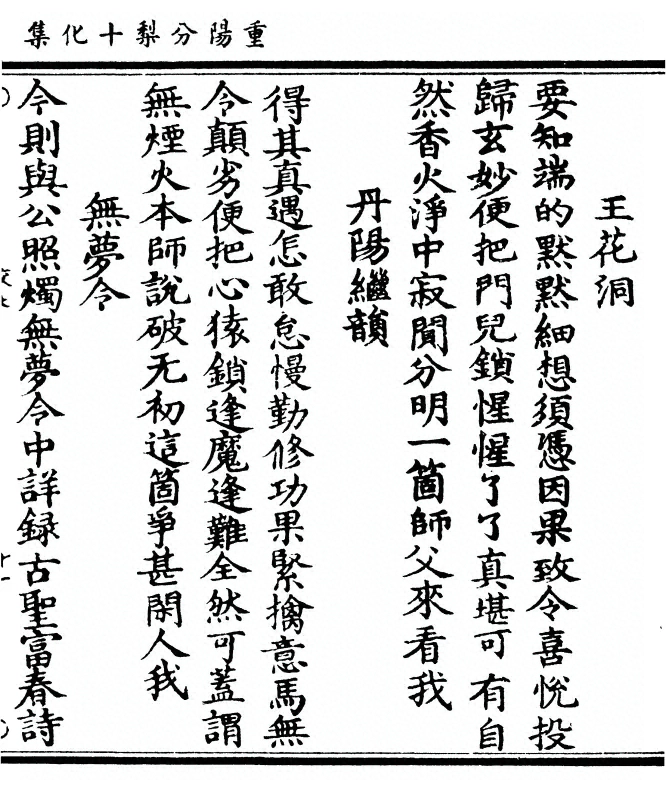 重陽分梨十化集
王花洞
要知端的默默細想須憑因果致令喜悅投
歸玄妙便把門兒鎖惺惺了了真堪可有自
然香火淨中寂聞分明一箇師父來看我
丹陽繼韻
得其真遇怎敢怠慢勤修功果緊擒意馬無
令顛劣便把心猿鎖逢魔逢難全然可蓋謂
無煙火本師說破无初這箇爭甚閑人我
無夢令
今則與公照燭無夢令中詳録古聖富春詩